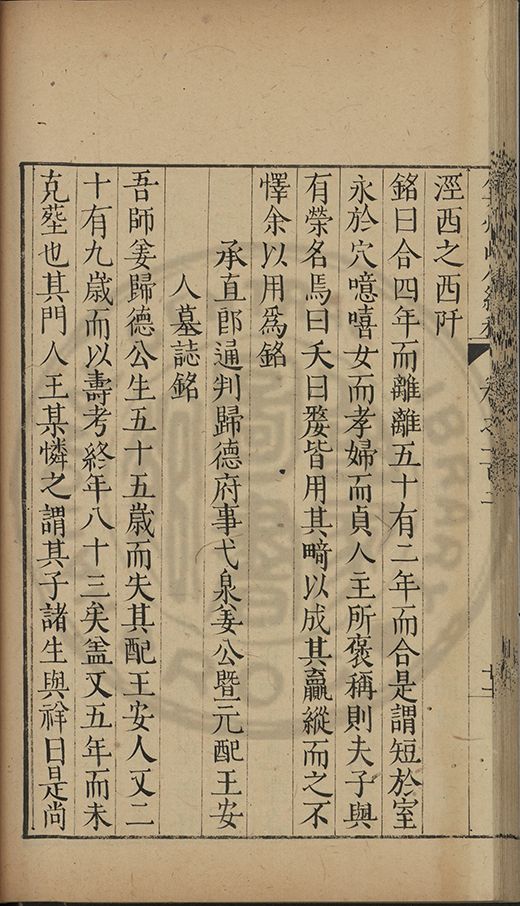 涇西之西阡
銘曰合四年而離離五十有二年而合是謂短於室
永於穴噫嘻女而孝婦而貞人主所褒稱則夫子與
有榮名焉曰夭曰嫠皆用其畸以成其贏縱而之不
懌余以用爲銘
承直郎通判歸德府事弋泉姜公暨元配王安
人墓誌銘
吾師姜歸德公生五十五歲而失其配王安人又二
十有九歲而以壽考終年八十三矣盖又五年而未
克塟也其門人王某憐之謂其子諸生與祥曰是尚